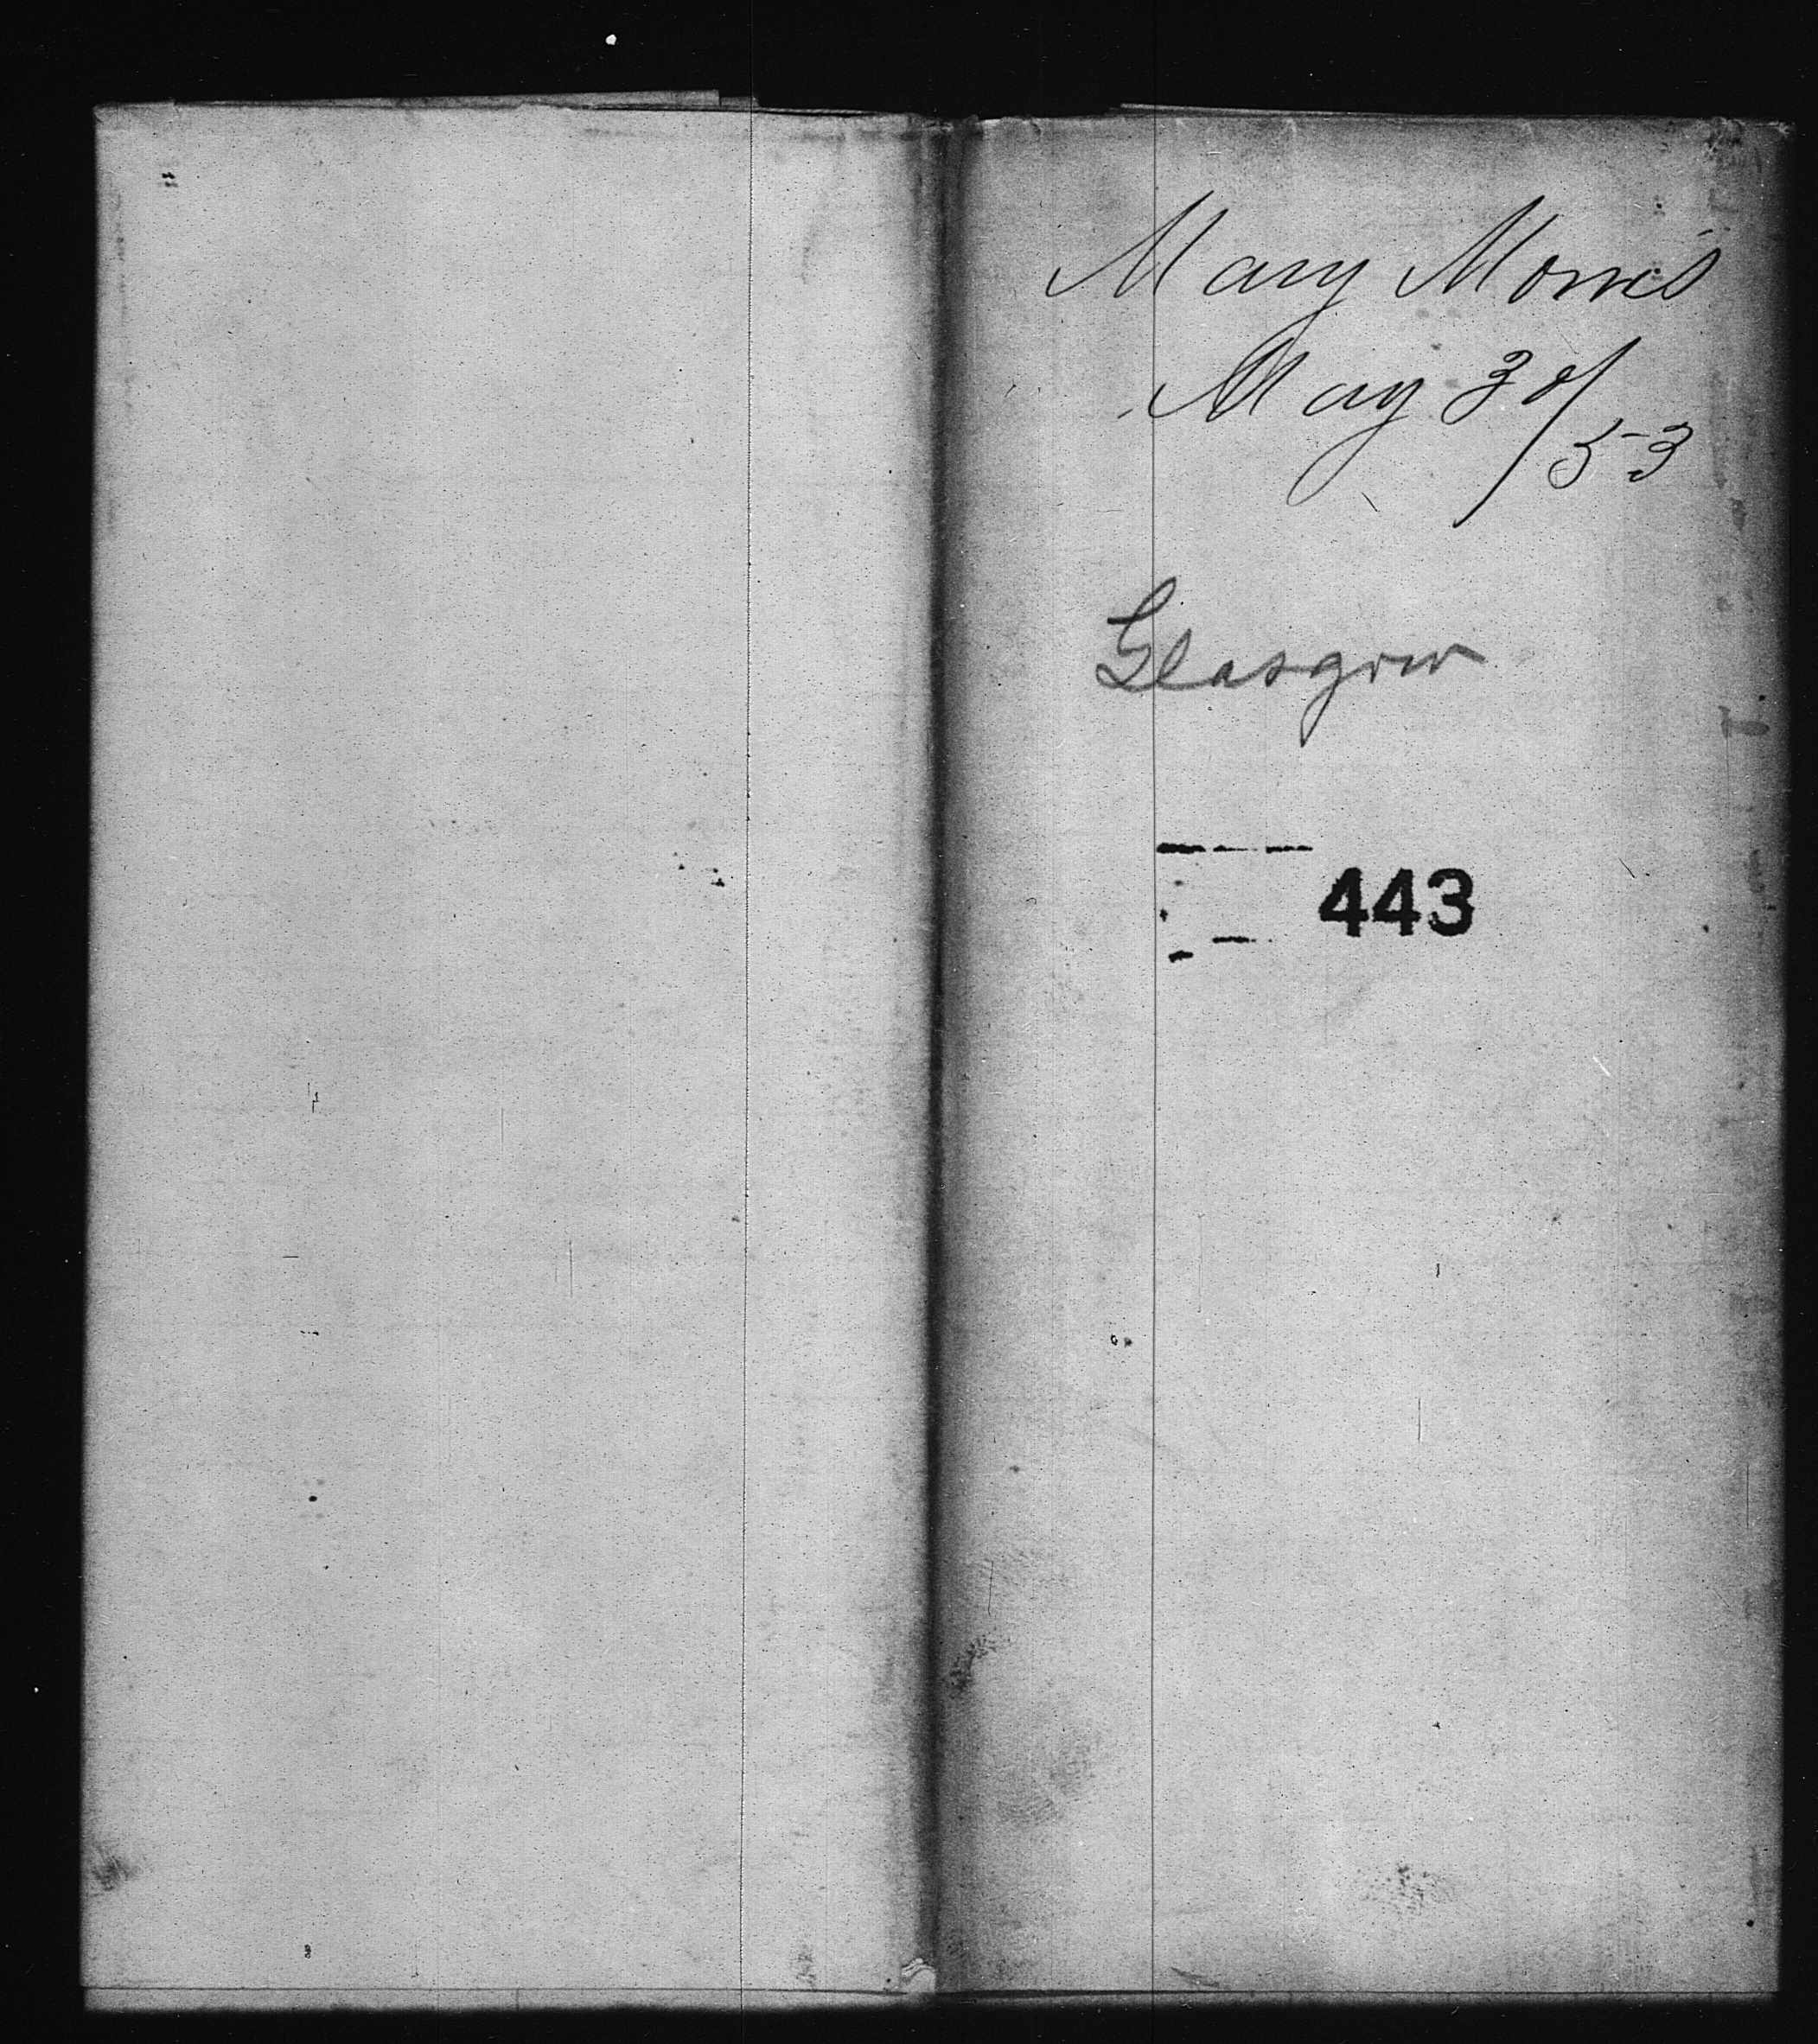 Mary Morris
May 30/53
Glasgow
443